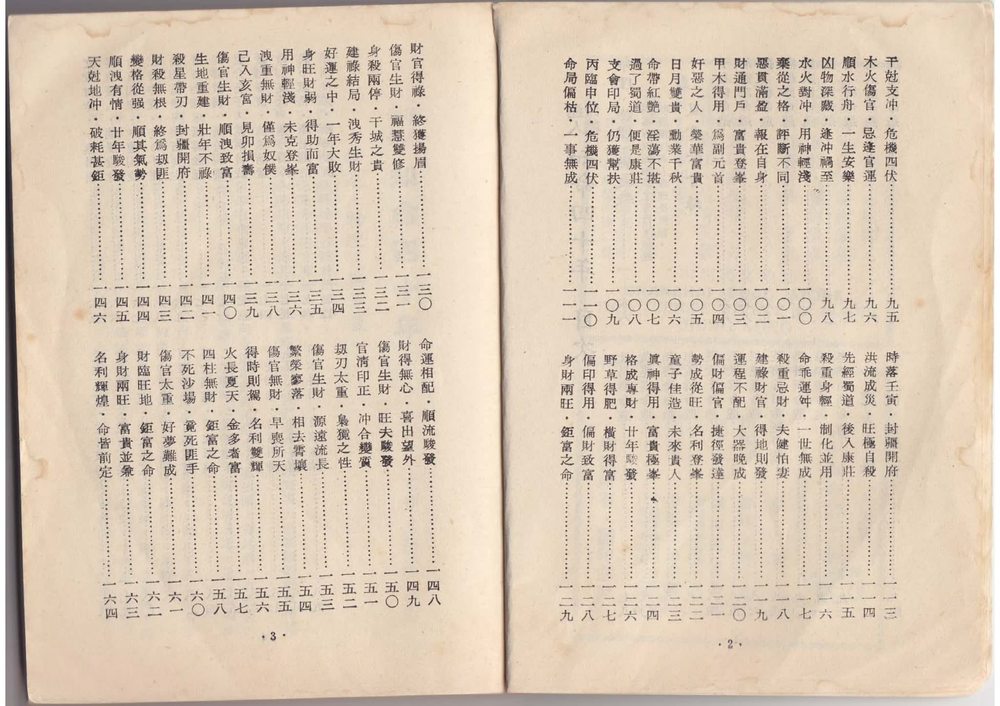 干尅支冲・危機四伏……九五
木火傷官・忌逢官運……九六
順水行舟・一生安樂……九七
凶物深藏・逢冲禍至……九八
水火對冲・用神輕淺……一〇〇
棄從之格・評斷不同……一〇一
惡貫滿盈・報在自身……一〇二
財通門戶・富貴登峯……一〇三
甲木得用・爲副元首……一〇四
奸惡之人・榮華富貴……一〇五
日月雙貴・勳業千秋……一〇六
命帶紅艷・淫蕩不堪……一〇七
過了蜀道・便是康莊……一〇八
支會印局・仍獲幫扶……一〇九
丙臨申位・危機四伏……一一〇
命局偏枯・一事無成……一一一
時落壬寅・封疆開府……一一三
洪流成災・旺極自殺……一一四
先經蜀道・後入康莊……一一五
殺重身輕・制化並用……一一六
命乖運舛・一世無成……一一七
殺重忌財・夫健怕妻……一一八
建祿財官・得地則發……一一九
運程不配・大器晚成……一二〇
偏財偏官・捷徑發達……一二一
勢成從旺・名利登峯……一二二
童子佳造・未來貴人……一二三
眞神得用・富貴極峯……一二四
格成專財・廿年駿發……一二六
野草得肥・橫財得富……一二七
偏印得用・偏財致富……一二八
身財兩旺・鉅富之命……一二九
・2・
財官得祿・終獲揚眉……一三〇
傷官生財・福慧雙修……一三一
身殺兩停・干城之貴……一三二
建祿結局・洩秀生財……一三三
好運之中・一年大敗……一三四
身旺財弱・得助而富……一三五
用神輕淺・未克登峯……一三六
洩重無財・僅爲奴僕……一三八
己入亥宮・見卯損壽……一三九
傷官生財・順洩致富……一四〇
生地重建・壯年不祿……一四一
殺星帶刃・封疆開府……一四二
財殺無根・終爲刧匪……一四三
變格從强・順其氣勢……一四四
順洩有情・廿年駿發……一四五
天尅地冲・破耗甚鉅……一四六
命運相配・順流駿發……一四八
財得無心・喜出望外……一四九
傷官生財・旺夫駿發……一五〇
官清印正・冲合變質……一五一
刧刃太重・梟獍之性……一五二
傷官生財・源遠流長……一五三
繁榮寥落・相去霄壤……一五四
傷官無財・早喪所天……一五五
得時則駕・名利雙輝……一五六
火長夏天・金多者富……一五七
四柱無財・鉅富之命……一五八
不死沙場・竟死匪手……一六〇
傷官太重・好夢難成……一六一
財臨旺地・鉅富之命……一六二
身財兩旺・富貴並兼……一六三
名利輝煌・命皆前定……一六四
・3・